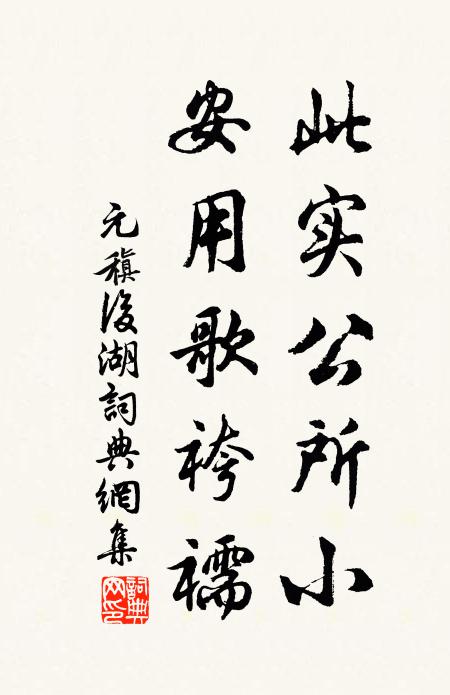 此实公所小
安用歌袴襦
元稹後湖詞典網集
詞典网印